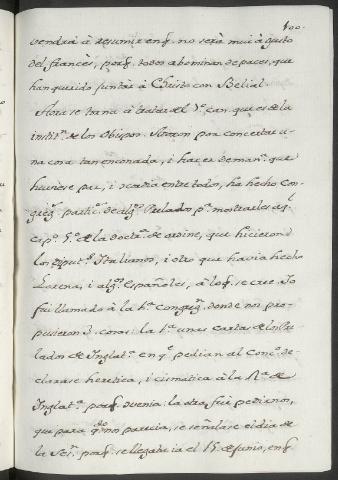 100.
vendrà à resumir en q̃ no serà mui à gusto
del francès, porq̃ todos abominan de paces, que
han querido juntàr à Christo con Belial.
Aora se torna à tratar del
instit.ⁿ de los Obispos. por concertar u-
na cosa tan enconada, i hacer de manª. que
huviese paz, i entre todos, ha hecho Con-
greg.ⁿ partic.ʳ de alg.ˢ Prelados pª. mostrarles aq.ˡ
cap.º 5.º de la doctª. de ordine, que hicieron
los Diput.ˢ Italianos, i otro que havia hecho
Lorena, i alg.ˢ Españoles, à los q.ˢ se cree Io
fui llamado à la 1.ª Congreg.ⁿ donde nos pro-
pusieron 3. cosas: la 1.ª unas cartas de los Pre-
lados de Inglatª. en q.ᵉ pedian al Conc.º de-
clarase heretica, i cismatica à la R.ª de
Inglatª. porq̃ la otra, fuè pedirnos,
que para q.ᵈᵒ nos parecia, se señalase el dia de
la Ses.ⁿ porq̃ se llegaba ia el 15. de Junio, en q̃